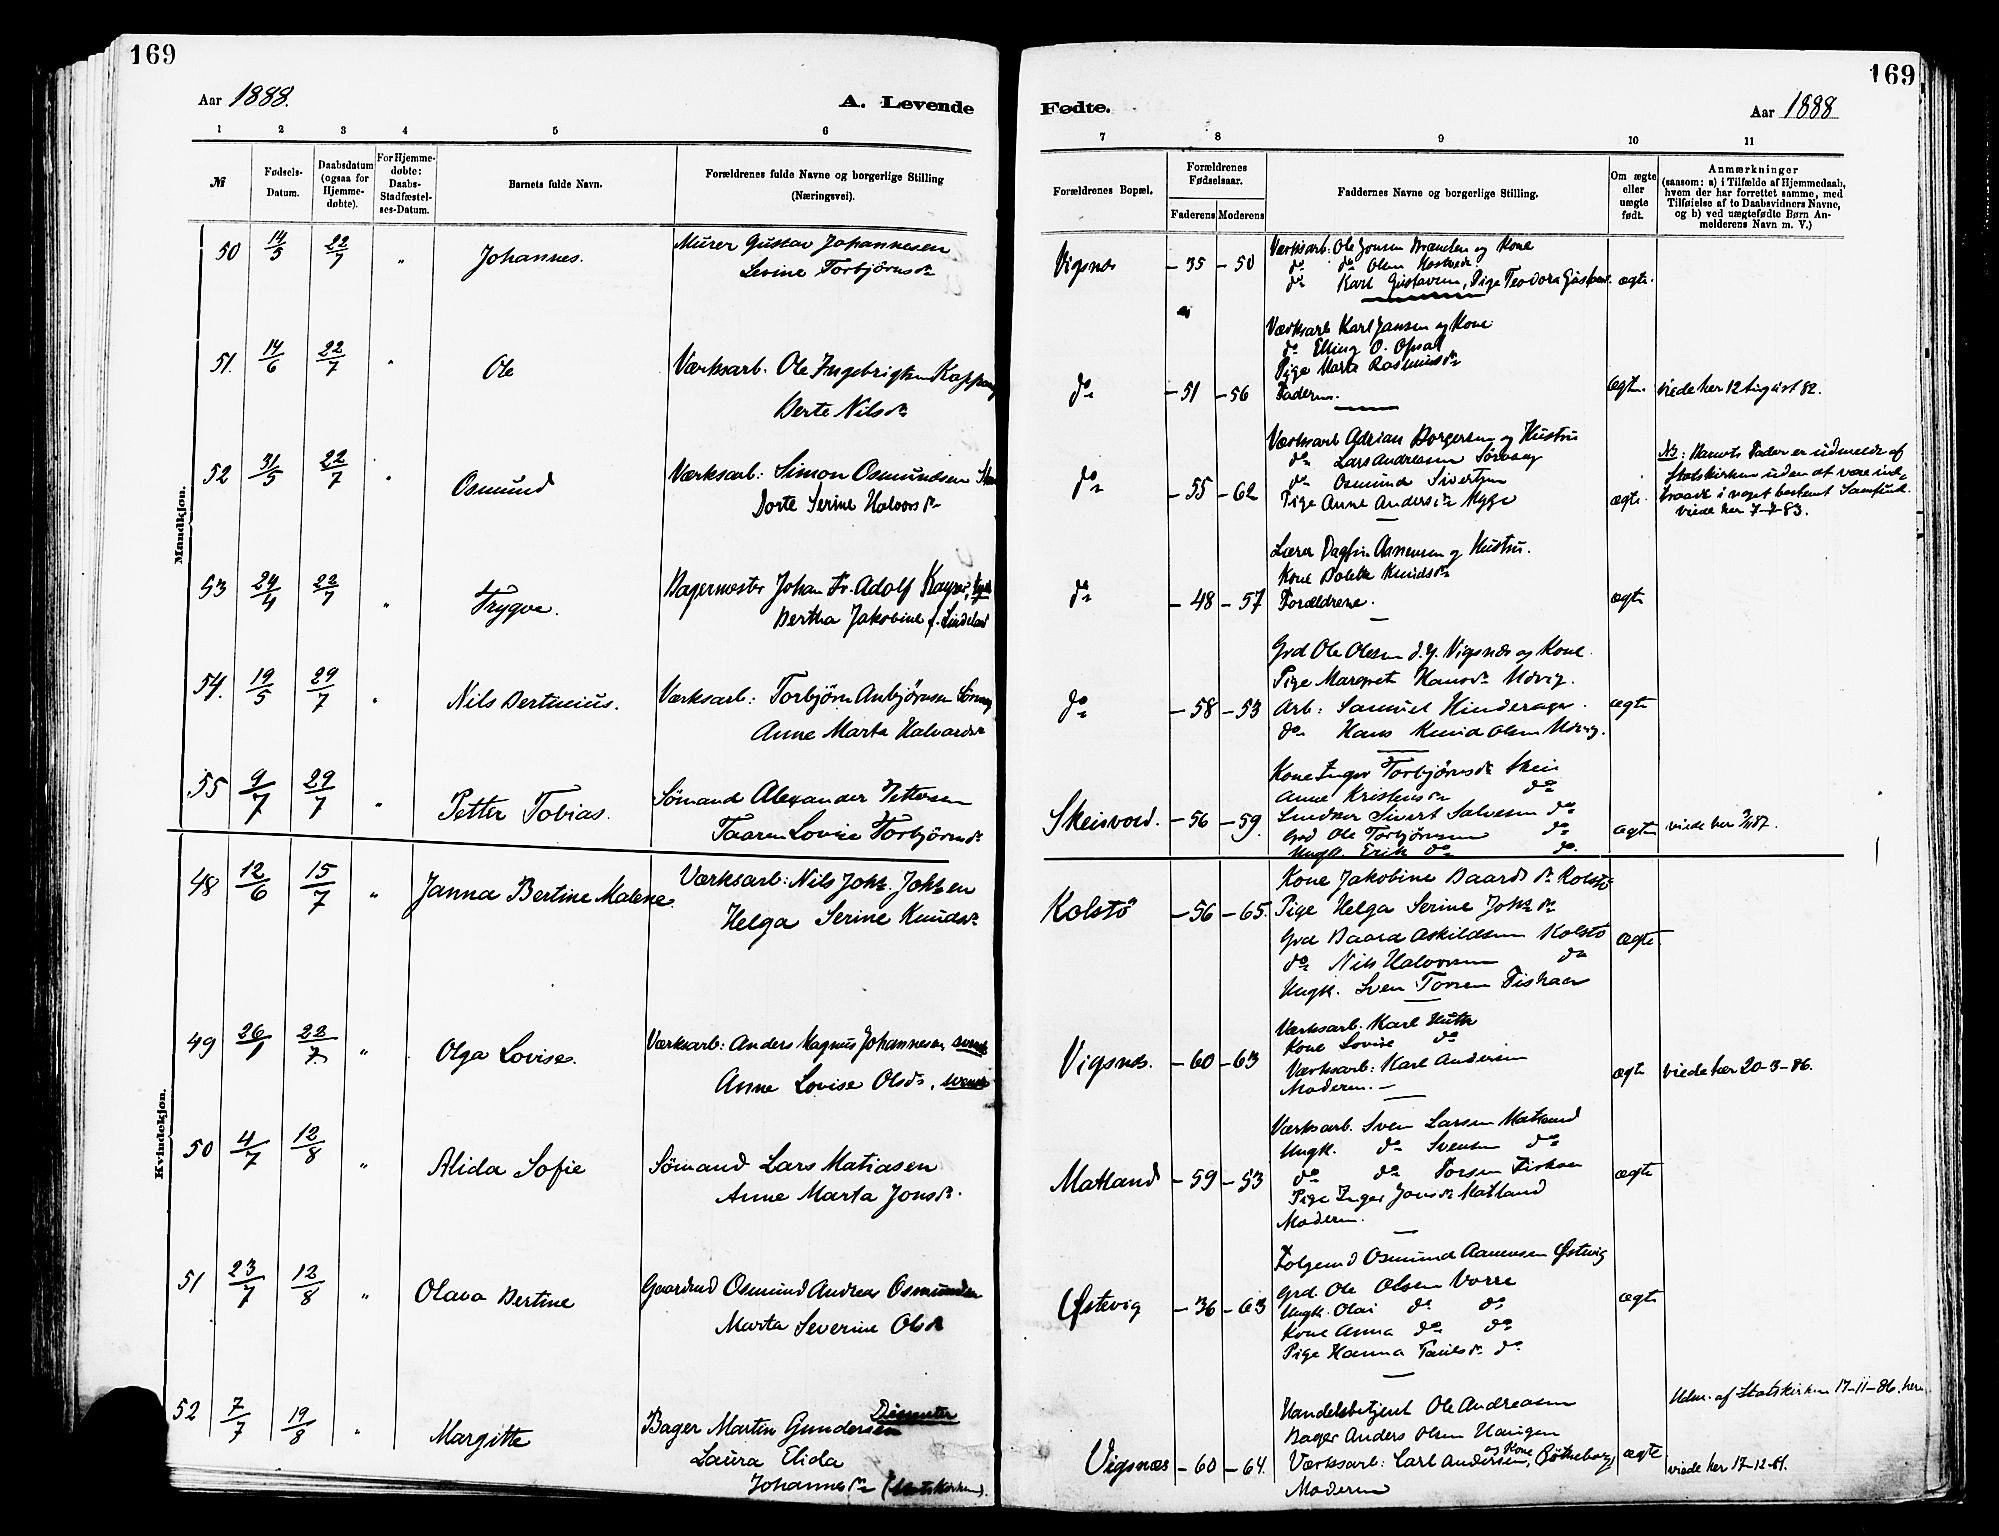 169
Aar 1888.
A. Levende
1 2 3 4 5 6
№
Fødsels-Datum.
Daabsdatum (ogsaa for Hjemme-døbte).
For Hjemme-døbte: Daabs-Stadfæstel-ses-Datum.
Barnets fulde Navn.
Forældrenes fulde Navne og borgerlige Stilling (Næringsvei).
Mandkjøn.
50 14/5 22/7 " Johannes. Murer Gustav Johannesen
Levine Torbjørnsdr
51. 14/6 22/7 " Ole Værksarb. Ole Ingebrigtsen
Berte Nilsdr
52 31/5 22/7 " Osmund Værksarb: Simon Osmundsen
Dorte Serine Halvorsdr
53 24/4 22/7 " Trygve. Bagermester Johan Fr. Adolf Kayser,
Bertha Jakobine f. Lindeland
54. 19/5 29/7 " Nils Bertinius. Værksarb: Torbjørn Anbjørnsen
Anne Marta Halvardsdr
55 9/7 29/7 " Petter Tobias. Sømand Alexander Pettersen
Taaren Lovise Torbjørnsdr
Kvindekjøn.
48 12/6 15/7 " Janna Bertine Malene Værksarb: Nils Johs. Johsen
Helga Serine Knudsdr
49 26/1 22/7. " Olga Lovise. Værksarb: Anders Magnus Johannesen, svensk
Anne Lovise Olsdr, svensk
50 4/7 12/8 " Alida Sofie Sømand Lars Matiasen
Anne Marta Jonsdr.
51 23/7 12/8 " Olava Bertine Gaardmd Osmund Andreas Osmundsen
Marta Severine Olsdr
52 7/7 19/8 " Margitte Bager Martin Gundersen Dissenter
Laura Elida
Johannesdr (Statskirken).
169
Fødte.
Aar 1888
7 8 9 10 11
Forældrenes Bopæl.
Forældrenes Fødselsaar.
Faderens Moderens
Faddernes Navne og borgerlige Stilling.
Om ægte eller uægte født.
Anmærkninger
(saasom: a) i Tilfælde af Hjemmedaab, hvem der har forrettet samme, med Tilføielse af to Daabsvidners Navne, og b) ved uægtefødte Børn An-melderens Navn m. V.)
Værksarb. Ole Jonsen og Kone
do do Olsen
Vigsnes - 35 - 50 do Karl Gustavsen, Pige Teodora ægte.
Værksarb Karl Jansen og Kone
do Elling O. Opsal
Pige Marta Rasmusdr
do - 51 - 56 Faderen. ægte. viede her 12 August 82.
Værksarb Adrian Borgersen og Hustru
do Lars Andreasen Sørvaag
do Osmund Sivertsen
do - 55 - 62 Pige Anne Andersdr Mygge ægte.
NB: Barnets Fader er udmeldt af
Statskirken uden at være ind-
traadt i noget bestemt Samfund.
viede her 7-7-83.
Lærer Dagfin Aanensen og Hustru.
Kone Bolette Knudsdr
do - 48 - 57 Forældrene. ægte
Grd Ole Olesen d.y. Vigsnes og Kone.
Pige Margrete Hansdr Udvig.
do - 58 - 53 Arb: Samuel Hinderager. ægte
do Hans Knud Olsen Udvig.
Kone Inger Torbjørnsdr Skeie
Anne Kristensdr do
Skeisvold. - 56 - 59. Snedker Sivert Salvesen do
Grd Ole Torbjørnsen do ægte
Ungk. Erik do do.
Kone Jakobine Baardsdr Kolstø
Kolstø - 56 - 65. Pige Helga Serine Johsdr
Grd Baard Askildsen Kolstø ægte
do Nils Halvorsen do
Ungk. Sven Torsen Fiskaa
Værksarb. Karl Huth
Kone Lovise do
Vigsnes. - 60 - 63 Værksarb: Karl Andersen ægte viede her 20-3-86.
Moderen.
Værksarb. Sven Larsen Matland
Ungk. do Svensen do
Matland - 59 - 53 do do Torsen Fiskaa ægte
Pige Inger Jonsdr Matland
Moderen.
Folgemd Osmund Aanensen Østevig
Grd Ole Olsen Vorre
Østevig - 36 - 63 Ungk. Olai do do ægte
Kone Anna do do
Pige Hanna Paulsdr do
Udm. af Statskirken 17-11-86. her
Handelsbetjent Ole Andreasen
Bager Anders Olsen
Vigsnes - 60 - 64. Værksarb: Carl Andersen og Kone, ægte viede her
Moderen